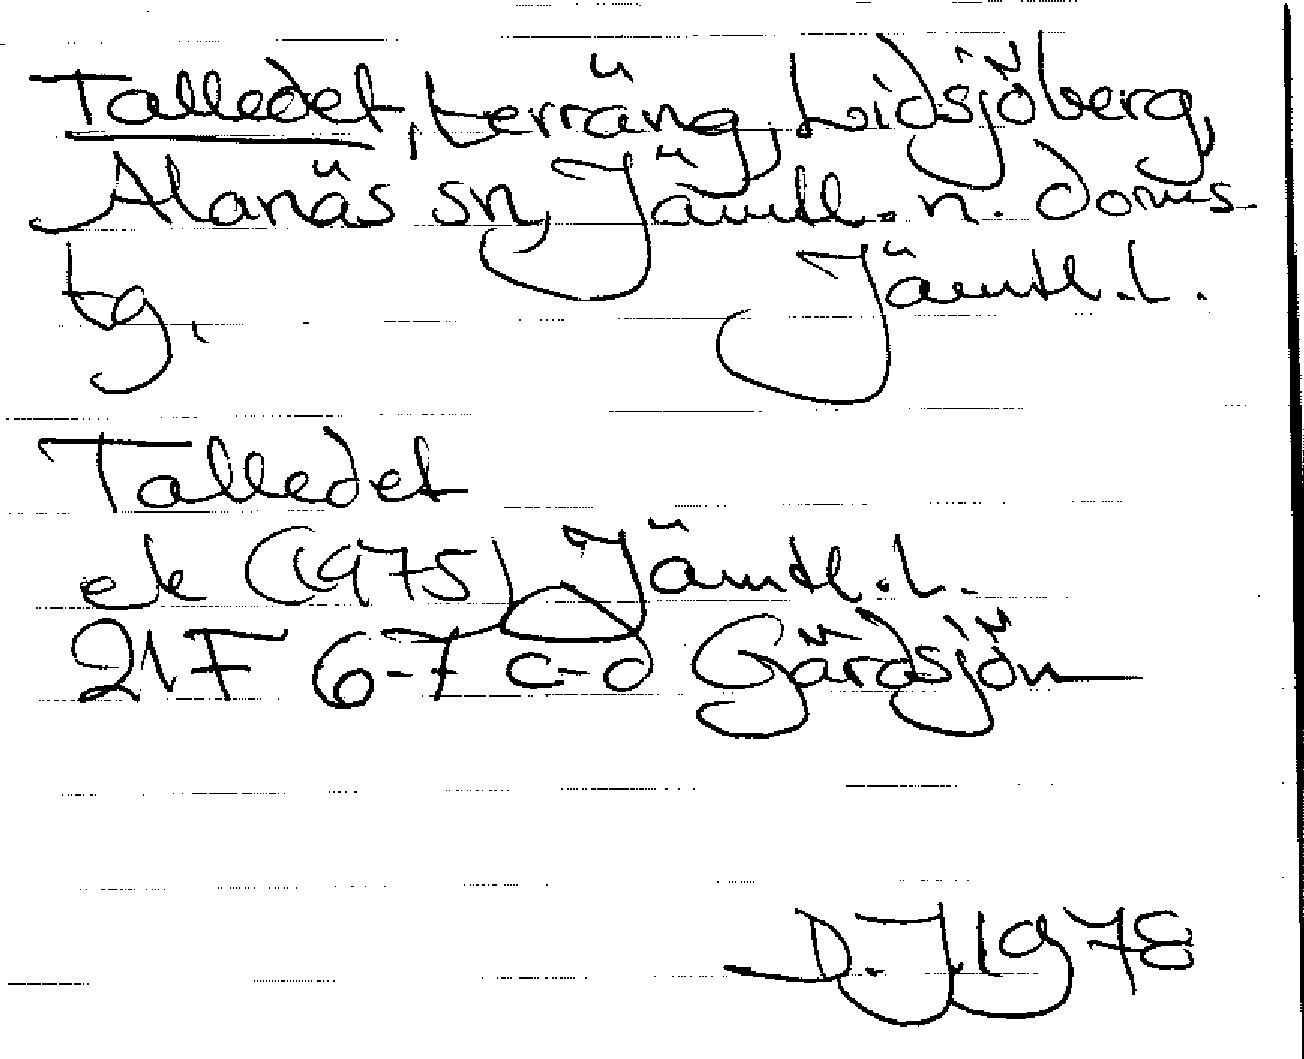 Talledet, terräng, Lidsjöberg,
Alanäs sn, Jämtl. n. doms
tg. Jämtl. l.
Talledet
ek (1975) Jämtl. l.
21F 6-7 c-d Gärdsjön
D.J. 1978